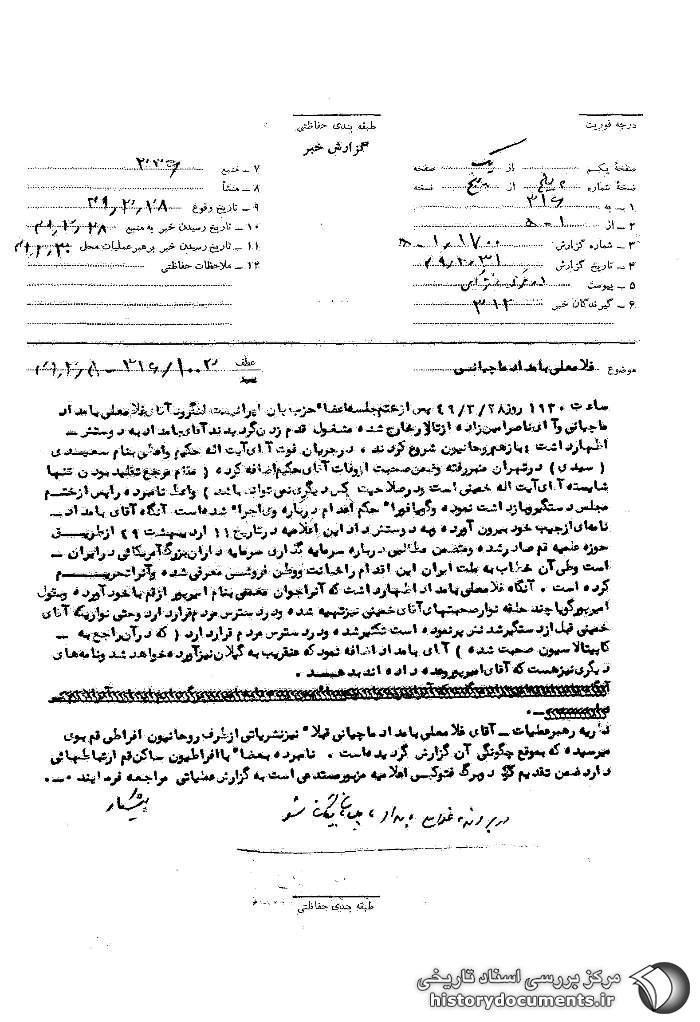 درجه فوریت
طبقه بندی حفاظتی
گزارش خبر
صفحهٔ یکم از یک صفحه
نسخهٔ شماره ۲ از پنج نسخه
۱ ـ به ۳۱۶
۲ ـ از ۱ـ ۵
۳ ـ شماره گزارش ۵۰۱٫۱۷۰۰
۴ ـ تاریخ گزارش ۴۹٫۲٫۳۱
۵ ـ پیوست
۶ ـ گیرندگان خبر ۳۱۲
۷ ـ منبع
۸ ـ منشأ
۹ ـ تاریخ وقوع ۴۹٫۲٫۲۸
۱۰ ـ تاریخ رسیدن خبر به منبع ۴۹٫۲٫۲۸
۱۱ ـ تاریخ رسیدن خبر به رهبر عملیات محل ۴۹٫۲٫۳۰
۱۲ ـ ملاحظات حفاظتی
موضوع غلامعلی بامداد ماچیانی
عطف
ساعت ۱۹۳۰ روز ۴۹/۲/۲۸ پس از ختم جلسه اعضاء حزب پان ایرانیست لنگرود آقای غلامعلی بامداد
ماچیانی و آقای ناصر امین زاده از تالار خارج شده مشغول قدم زدن گردیدند آقای بامداد به دوستش ـ
اظهار داشت ؛ باز هم روحانیون شروع کردند ، در جریان فوت آقای آیت اله حکیم واعظی بنام سعیدی
( سیدی ) در تهران منبر رفته و ضمن صحبت از وفات آقای حکیم اضافه کرده ( مقام مرجع تقلید بودن تنها
شایسته آقای آیت اله خمینی است و در صلاحیت کس دیگری نمی تواند باشد ) واعظ نامبرده را پس از ختم
مجلس دستگیر و بازداشت نموده و گویا فوراً حکم اعدام درباره وی اجرا شده است . آنگاه آقای بامداد ـ
نامه ای از جیب خود بیرون آورده و به دوستش داد این اعلامیه در تاریخ ۱۱ اردیبهشت ۴۹ از طریق
حوزه علمیه قم صادر شده و متضمن مطالبی درباره سرمایه گذاری سرمایه داران بزرگ آمریکائی در ایران ـ
است و طی آن خطاب به ملت ایران این اقدام را خیانت و وطن فروشی معرفی شده و آنرا تحریم
کرده است . آنگاه غلامعلی بامداد اظهار داشت که آنرا جوان محصلی بنام امیرپور از قم با خود آورده و بقول
امیرپور گویا چند حلقه نوار صحبتهای آقای خمینی نیز تهیه شده و در دسترس مردم قرار دارد و حتی نواریکه آقای
خمینی قبل از دستگیر شدنش پر نموده است تکثیر شده و در دسترس مردم قرار دارد ( که در آن راجع به ـ
کاپیتالاسیون صحبت شده ) آقای بامداد اضافه نمود که عنقریب به گیلان نیز آورده خواهد شد و نامه های
دیگری نیز هست که آقای امیرپور وعده داده اند بدهند .
نظریه رهبر عملیات ـ آقای غلامعلی بامداد ماچیانی قبلاً نیز نشریاتی از طرف روحانیون افراطی قم بوی
میرسیده که بموقع چگونگی آن گزارش گردیده است . نامبرده بعضاً با افراطیون ساکن قم ارتباطهائی
دارد ضمن تقدیم دو برگ فتوکپی اعلامیه مزبور مستدعی است به گزارش عملیاتی مراجعه فرمایند .
در پرونده غلامعلی بامداد بایگانی شود
طبقه بندی حفاظتی
مرکز بررسی اسناد تاریخی
historydocuments.ir